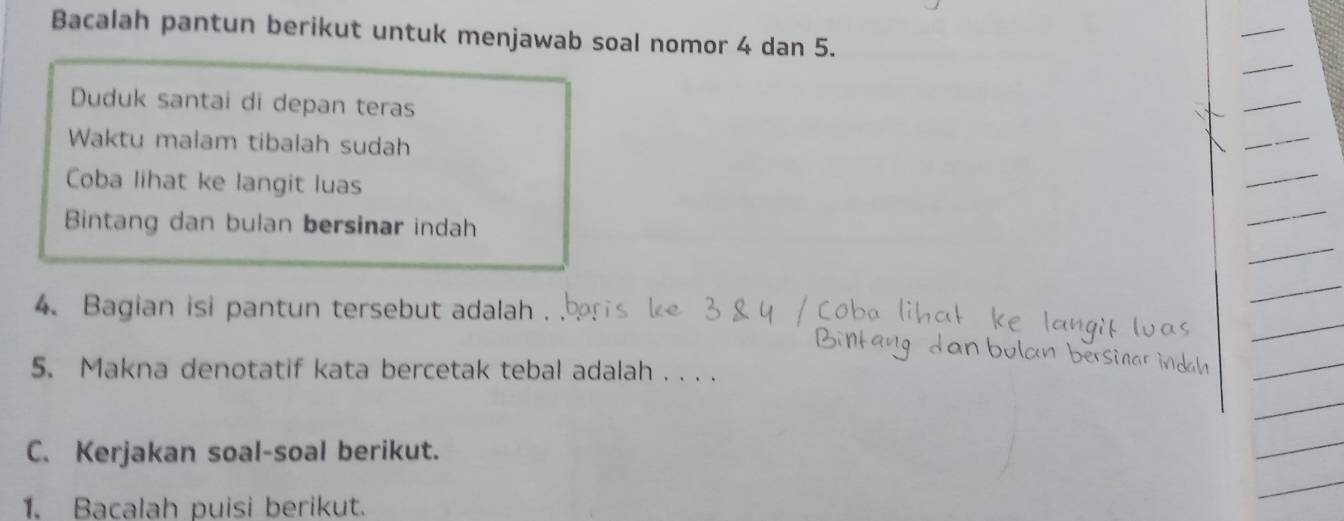 Bacalah pantun berikut untuk menjawab soal nomor 4 dan 5.
Duduk santai di depan teras
Waktu malam tibalah sudah
Coba lihat ke langit luas
Bintang dan bulan bersinar indah
4. Bagian isi pantun tersebut adalah . . . . baris ke 3 & 4 / Coba lihat ke langit luas
Bintang dan bulan bersinar indah
5. Makna denotatif kata bercetak tebal adalah . . . .
C. Kerjakan soal-soal berikut.
1. Bacalah puisi berikut.